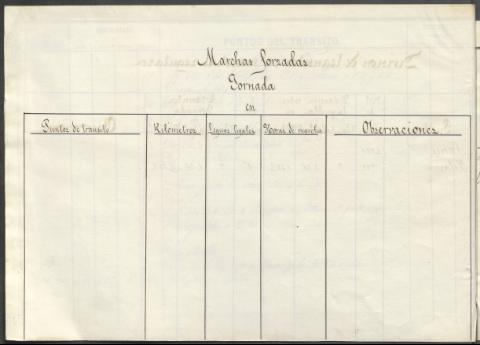 Marchas forzadas
Jornada
en
Puntos de transito
Kilómetros
Leguas legales
Horas de marcha
Observaciones